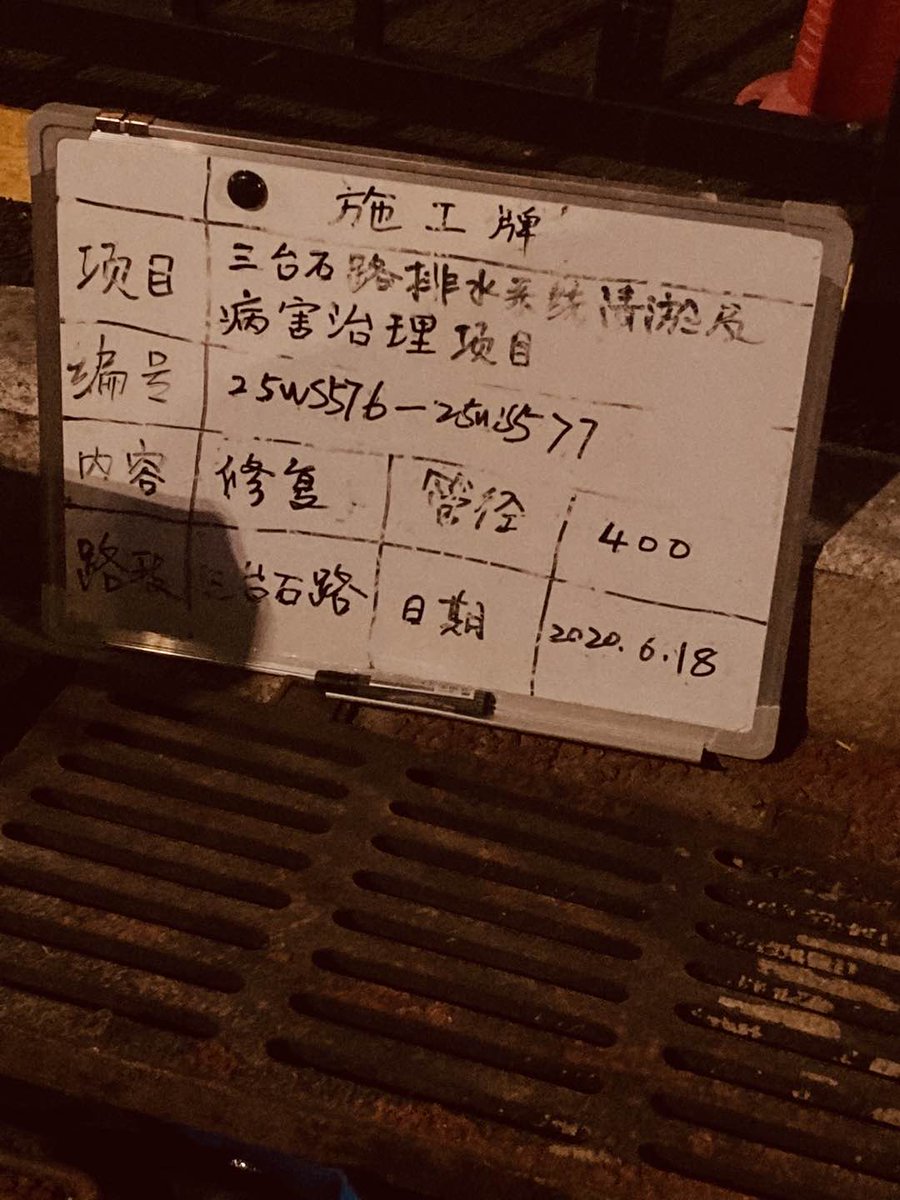 施工牌
项目 三台石路排水系统清淤及
病害治理项目
编号 25WS576—25WS577
内容 修复 管径 400
路段 三台石路 日期 2020.6.18